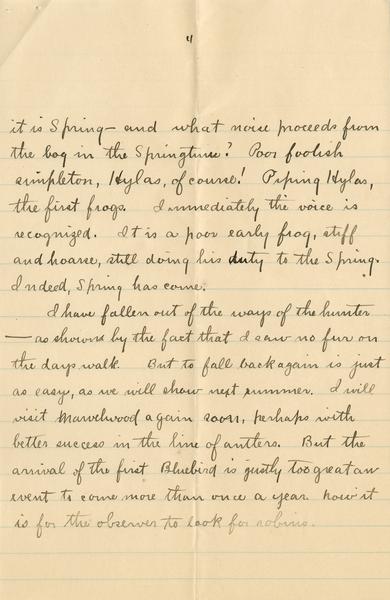 4
it is Spring— and what noise proceeds from
the bog in the Springtime? Poor foolish
simpleton, Hylas, of course! Piping Hylas,
the first frogs. Immediately the voice is
recognized. It is a poor early frog, stiff
and hoarse, still doing his duty to the Spring.
Indeed, Spring has come.
I have fallen out of the ways of the hunter
— as shown by the fact that I saw no fur on
the days walk. But to fall back again is just
as easy, as we will show next summer. I will
visit Marvelwood again soon, perhaps with
better success in the line of antlers. But the
arrival of the first Bluebird is justly too great an
event to come more than once a year. Now it
is for the observer to look for robins.